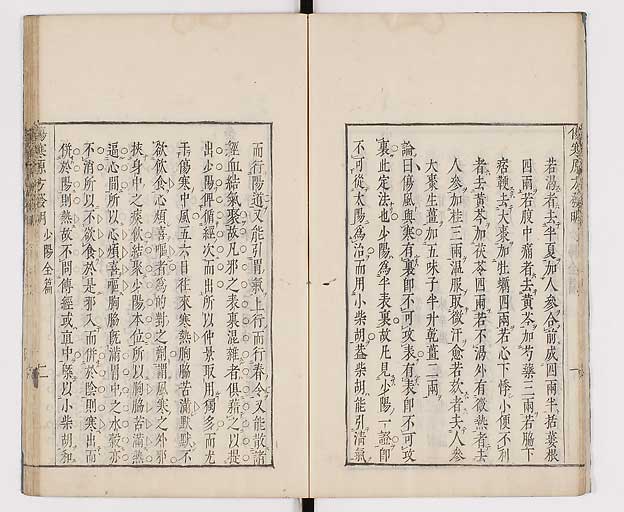 若渴者去半夏加人參合前成四兩半括蔞根
四兩若腹中痛者去黃芩加芍藥三兩若脇下
痞鞕去大棗加牡蠣四兩若心下悸小便不利
者去黃芩加茯苓四兩若不渴外有微熱者去
人參加桂三兩溫服取微汗愈若欬者去人參
大棗生薑加五味子半升乾薑二兩
論曰傷風與寒有裏卽不可攻表有表卽不可攻
裏此定法也少陽爲半表裏故凡見少陽一證卽
不可從太陽爲治而用小柴胡葢柴胡能引清氣
而行陽道又能引胃氣上行而行春令又能散諸
經血結氣聚故凡邪之表裏混雜者俱藉之以提
出少陽俾循經次而出所以仲景取用獨多而尤
于傷寒中風五六日往來寒熱胸脇苦滿默默不
欲飲食心煩喜嘔者爲的對之劑謂風寒之外邪
挾身中之痰飲結聚少陽本位所以胸脇苦滿熱
逼心間所以心煩喜嘔胸脇旣滿胃中之水穀亦
不消所以不欲食於是邪入而併於陰則寒出而
併於陽則熱故不問傳經或直中槩以小柴胡和
少陽全篇
二